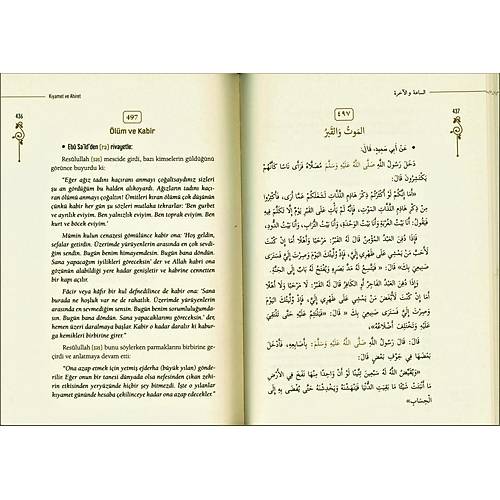 Kıyamet ve Ahiret
436
497
Ölüm ve Kabir
• Ebû Sa'îd'den (ra) rivayetle:
Resûlullah (sas) mescide girdi, bazı kimselerin güldüğünü
görünce buyurdu ki:
"Eğer ağız tadını kaçıranı anmayı çoğaltsaydınız sizleri
şu an gördüğüm bu halden alıkoyardı. Ağızların tadını kaçı-
ran ölümü anmayı çoğaltın! Ümitleri kıran ölümü çok düşünün
çünkü kabir her gün şu sözleri mutlaka tekrarlar: 'Ben gurbet
ve ayrılık eviyim. Ben yalnızlık eviyim. Ben toprak eviyim. Ben
kurt ve böcek eviyim.'
Mümin kulun cenazesi defnolduğunda kabir ona: 'Hoş geldin,
sefalar getirdin. Üzerimde yürüyenlerin arasında en çok sevdi-
ğim sendin. Bugün benim himayemdesin. Bugün bana döndün.
Sana yapacağım iyilikleri göreceksin' der ve Allah kabri ona
gözünün alabildiği yere kadar genişletir ve kabrine cennetten
bir kapı açılır.
Fâcir veya kâfir bir kul defnedilince de kabir ona: 'Sana
burada ne hoşluk var ne de rahatlık. Üzerimde yürüyenlerin
arasında en sevmediğim sensin. Bugün benim sorumluluğumda-
sın. Bugün bana döndün. Sana yapacaklarımı göreceksin' der,
hemen üzeri daralmaya başlar. Kabir o kadar daralır ki kabur-
ga kemikleri birbirine geçer."
Resûlullah (sas) bunu söylerken parmaklarını birbirine ge-
çirdi ve anlatmaya devam etti:
"Ona azap etmek için yetmiş ejderha (büyük yılan) gönderilir.
Eğer onun bir tanesi dünyada olsa nefesinden çıkan zehi-
rin etkisinden yeryüzünde hiçbir şey bitmezdi. İşte o yılanlar
kıyamet gününde hesaba çekilinceye kadar ona azap edecekler."
الساعة والآخرة
437
٤٩٧
الْمَوْتُ وَالْقَبْرُ
• عَنْ أَبِي سَعِيدٍ، قَالَ:
دَخَلَ رَسُولُ اللَّهِ صَلَّى اللَّهُ عَلَيْهِ وَسَلَّمَ مُصَلَّاهُ فَرَأَى نَاسًا كَأَنَّهُمْ
يَكْتَشِرُونَ قَالَ:
«أَمَا إِنَّكُمْ لَوْ أَكْثَرْتُمْ ذِكْرَ هَاذِمِ اللَّذَّاتِ لَشَغَلَكُمْ عَمَّا أَرَى، فَأَكْثِرُوا
مِنْ ذِكْرِ هَاذِمِ اللَّذَّاتِ الْمَوْتِ، فَإِنَّهُ لَمْ يَأْتِ عَلَى الْقَبْرِ يَوْمٌ إِلَّا تَكَلَّمَ
فِيهِ فَيَقُولُ: أَنَا بَيْتُ الْغُرْبَةِ وَأَنَا بَيْتُ الْوَحْدَةِ، وَأَنَا بَيْتُ التُّرَابِ، وَأَنَا بَيْتُ الدُّودِ،
فَإِذَا دُفِنَ الْعَبْدُ الْمُؤْمِنُ قَالَ لَهُ الْقَبْرُ: مَرْحَبًا وَأَهْلًا أَمَا إِنْ كُنْتَ
لَأَحَبَّ مَنْ يَمْشِي عَلَى ظَهْرِي إِلَيَّ، فَإِذْ وُلِّيتُكَ الْيَوْمَ وَصِرْتَ إِلَيَّ فَسَتَرَى
صَنِيعِيَ بِكَ» قَالَ: « فَيَتَّسِعُ لَهُ مَدَّ بَصَرِهِ وَيُفْتَحُ لَهُ بَابٌ إِلَى الْجَنَّةِ.
وَإِذَا دُفِنَ الْعَبْدُ الْفَاجِرُ أَوِ الْكَافِرُ قَالَ لَهُ الْقَبْرُ: لَا مَرْحَبًا وَلَا
أَهْلًا أَمَا إِنْ كُنْتَ لَأَبْغَضَ مَنْ يَمْشِي عَلَى ظَهْرِي إِلَيَّ، فَإِذْ وُلِّيتُكَ الْيَوْمَ
وَصِرْتَ إِلَيَّ فَسَتَرَى صَنِيعِيَ بِكَ » قَالَ: «فَيَلْتَئِمُ عَلَيْهِ حَتَّى تَلْتَقِيَ
عَلَيْهِ وَتَخْتَلِفَ أَضْلَاعُهُ».
قَالَ: قَالَ رَسُولُ اللَّهِ صَلَّى اللَّهُ عَلَيْهِ وَسَلَّمَ: بِأَصَابِعِهِ، فَأَدْخَلَ
بَعْضَهَا فِي جَوْفِ بَعْضٍ قَالَ:
«وَيُقَيِّضُ اللَّهُ لَهُ سَبْعِينَ تِنِّينًا لَوْ أَنَّ وَاحِدًا مِنْهَا نَفَخَ فِي الْأَرْضِ
مَا أَنْبَتَتْ شَيْئًا مَا بَقِيَتِ الدُّنْيَا فَيَنْهَشْنَهُ وَيَخْدِشْنَهُ حَتَّى يُفْضَى بِهِ إِلَى
الْحِسَابِ»